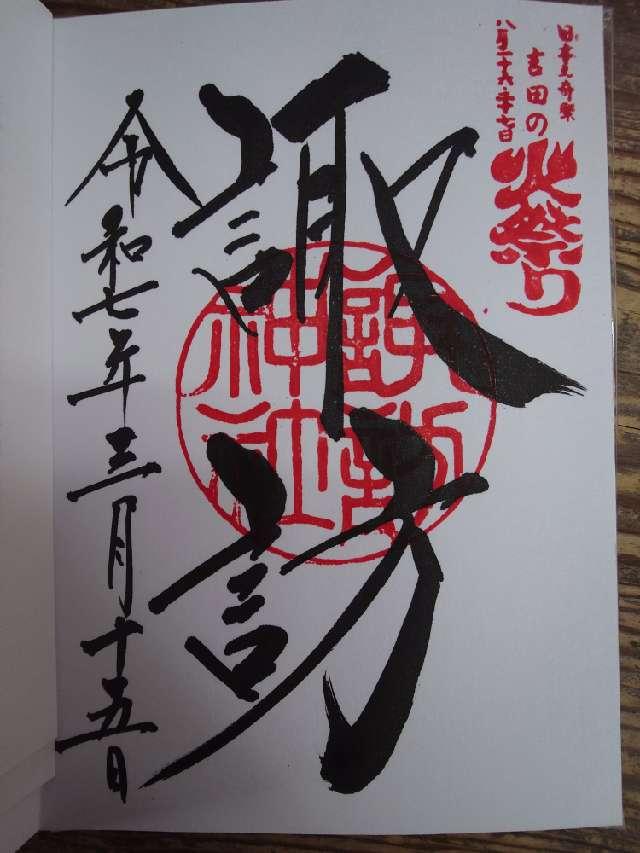 日本三奇祭
吉田の
火祭り
八月二十六・二十七日
諏訪
諏訪
神社
令和七年三月十五日